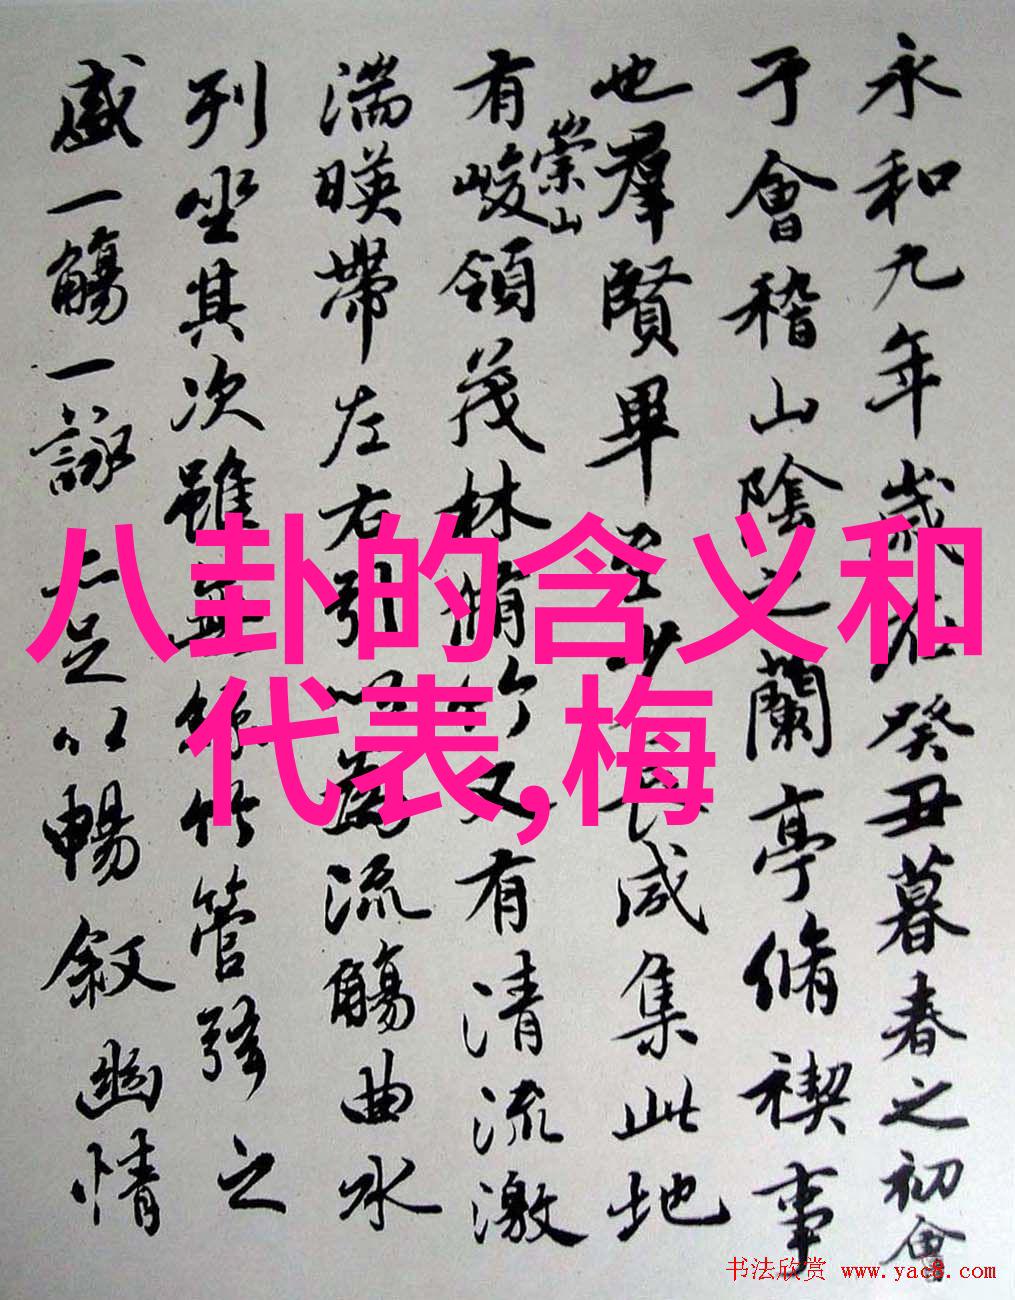 永和九年歲在癸丑暮春之初會
于會稽山陰之蘭亭脩禊事
也羣賢畢至少長咸集此地
有崇山峻領茂林脩竹又有清流激
湍暎帶左右引以為流觴曲水
列坐其次雖無絲竹管弦之
盛一觴一詠亦足以暢叙幽情
八卦的含义和
代表,梅
书法欣赏 www.yac8.com